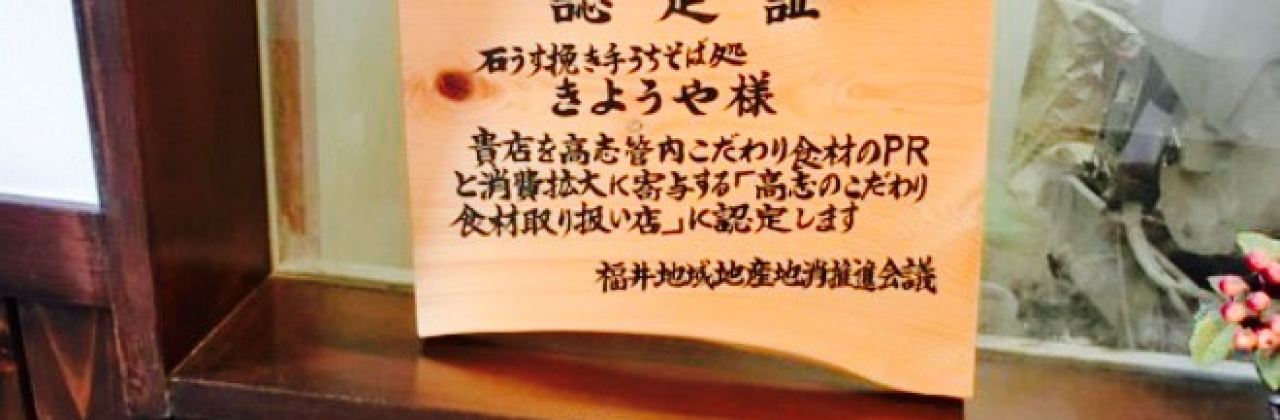 認定証
石うす挽き手うちそば処
きようや様
貴店を高志管内こだわり食材のPR
と消費拡大に寄与する「高志のこだわり
食材取り扱い店」に認定します
福井地域地産地消推進会議